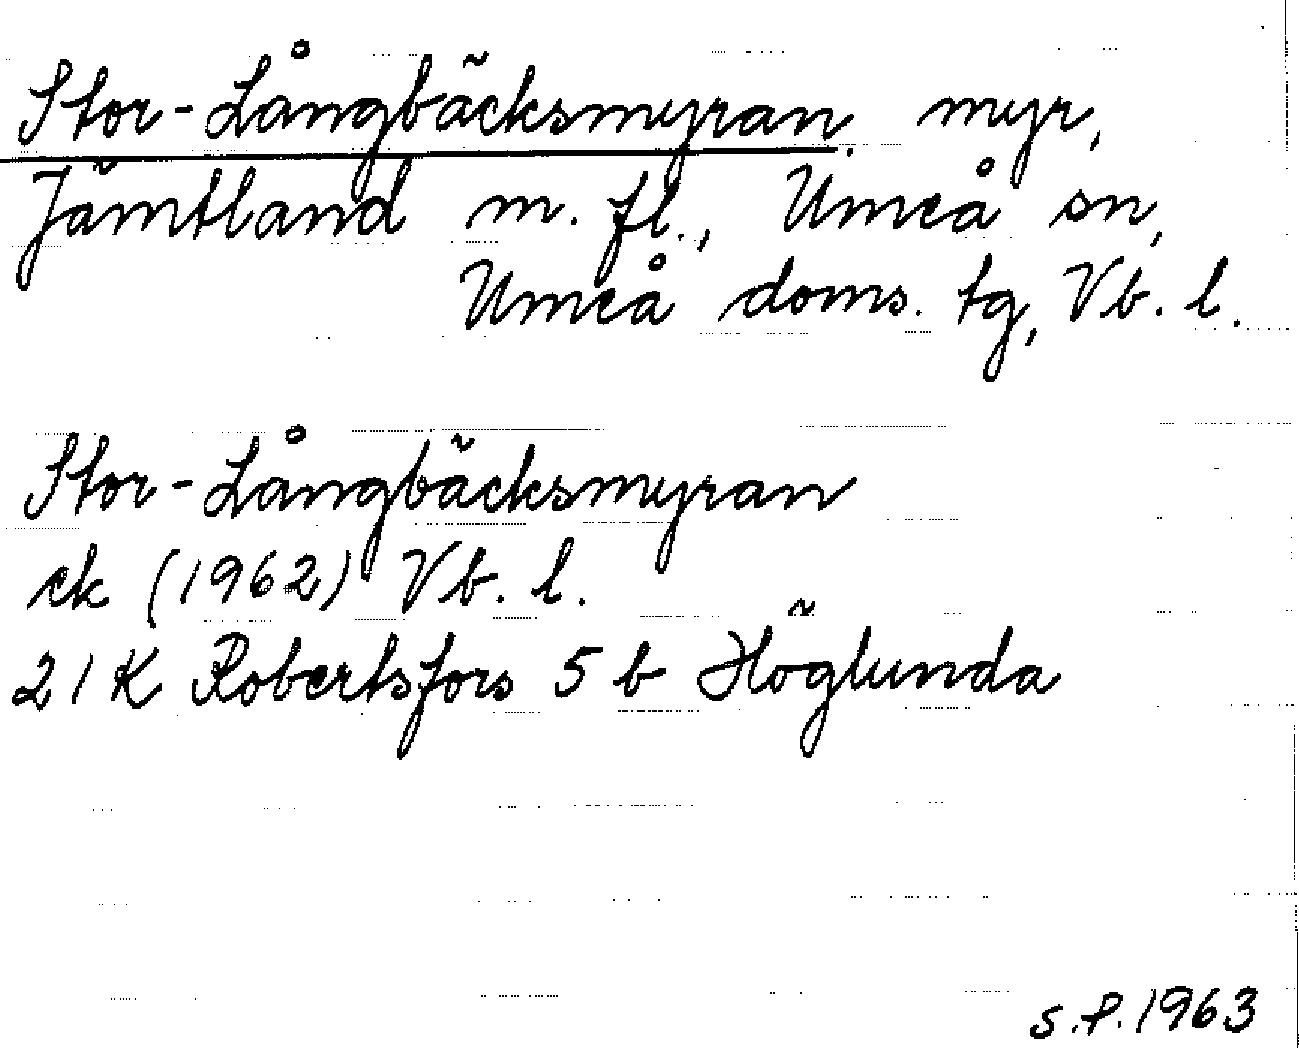 Stor-Långbäcksmyran, myr,
Jämtland m. fl., Umeå sn,
Umeå doms. tg, Vb. l.
Stor-Långbäcksmyran
ek (1962) Vb. l.
21K Robertsfors 5 b Höglunda
S.P. 1963